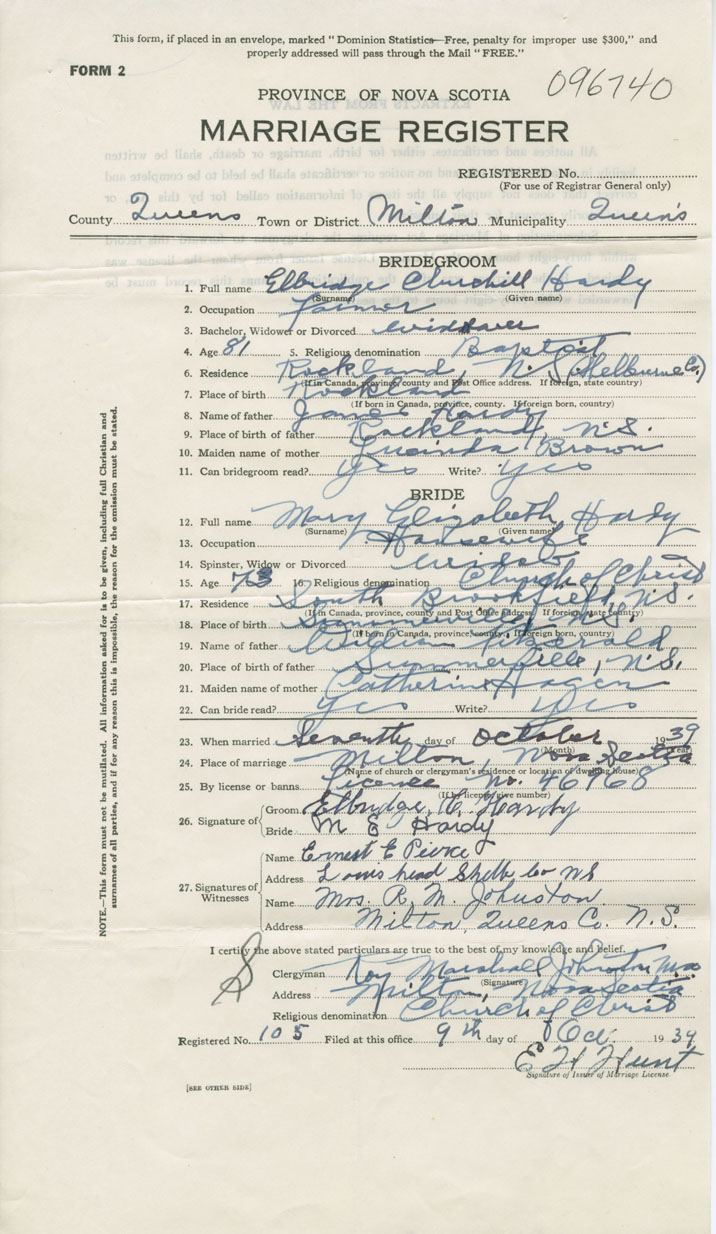 This form, if placed in an envelope, marked "Dominion Statistics—Free, penalty for improper use $300," and
properly addressed will pass through the Mail "FREE."
FORM 2
096740
PROVINCE OF NOVA SCOTIA
MARRIAGE REGISTER
REGISTERED No.
(For use of Registrar General only)
County Queens Town or District Milton Municipality Queen's
BRIDEGROOM
1. Full name Elbridge Churchill Hardy
(Surname) (Given name)
2. Occupation Farmer
3. Bachelor, Widower or Divorced widower
4. Age 81 5. Religious denomination Baptist
6. Residence Rockland, N.S. (Shelburne Co.)
(If in Canada, province, county and Post Office address. If foreign, state country)
7. Place of birth Rockland
(If born in Canada, province, county. If foreign born, country)
8. Name of father James Hardy
9. Place of birth of father Rockland, N.S.
10. Maiden name of mother Lucinda Brown
11. Can bridegroom read? Yes Write? Yes
BRIDE
12. Full name Mary Elizabeth Hardy
(Surname) (Given name)
13. Occupation Housewife
14. Spinster, Widow or Divorced Widow
15. Age 73 16. Religious denomination Church of Christ
17. Residence South Brookfield, N.S.
(If in Canada, province, county and Post Office address. If foreign, state country)
18. Place of birth Summerville, N.S.
(If born in Canada, province, county. If foreign born, country)
19. Name of father William Fitzgerald
20. Place of birth of father Summerville, N.S.
21. Maiden name of mother Catherine Hagen
22. Can bride read? Yes Write? Yes
23. When married Seventh day of October 1939
(Month) (Year)
24. Place of marriage Milton, Nova Scotia
(Name of church or clergyman's residence or location of dwelling house)
25. By license or banns License No. 46768
(If by license give number)
26. Signature of Groom Elbridge C. Hardy
Bride M E Hardy
27. Signatures of Witnesses
Name Ernest E Pierce
Address Louis head Shelb Co NS
Name Mrs. R. M. Johnston
Address Milton, Queens Co. N.S.
I certify the above stated particulars are true to the best of my knowledge and belief.
Clergyman Roy Marshall Johnston
(Signature)
Address Milton, Nova Scotia
Religious denomination Church of Christ
Registered No. 105 Filed at this office 9th day of Oct. 1939
E H Hunt
Signature of Issuer of Marriage License
[SEE OTHER SIDE]
NOTE.—This form must not be mutilated. All information asked for is to be given, including full Christian and
surnames of all parties, and if for any reason this is impossible, the reason for the omission must be stated.